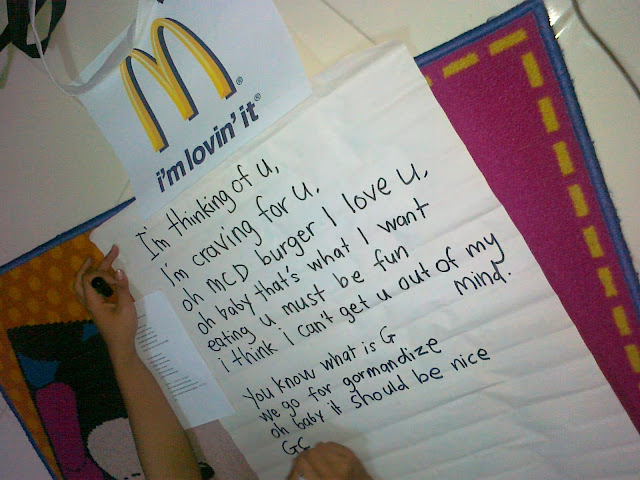 i'm lovin' it®
I'm thinking of u,
I'm craving for u.
oh McD burger I love u,
oh baby that's what I want
eating u must be fun
i think i can't get u out of my
mind.
You know what is G
we go for gormandize
oh baby it should be nice